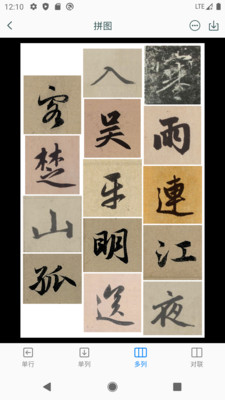 12:10
LTE
拼图
寒雨連江夜
入吳平明送
客楚山孤
单行
单列
多列
对联